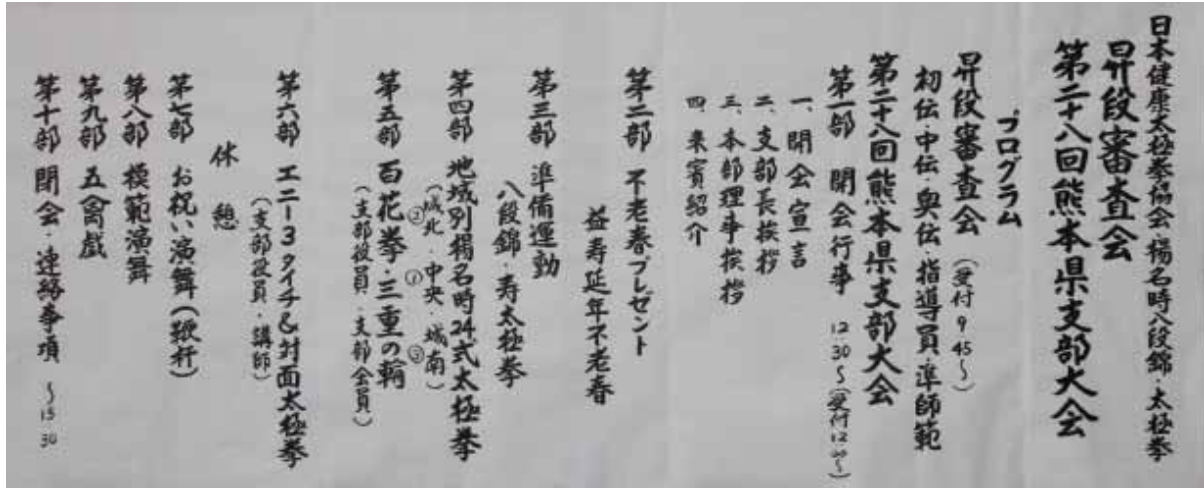 日本健康太極拳協会 楊名時八段錦・太極拳
昇段審査会
第二十八回熊本県支部大会
プログラム
昇段審査会 (受付 9 45〜)
初伝・中伝・奥伝・指導員・準師範
第二十八回熊本県支部大会
第一部 開会行事 12 30〜(受付12
一、開会宣言
二、支部長挨拶
三、本部理事挨拶
四、来賓紹介
第二部 不老春プレゼント
益寿延年不老春
第三部 準備運動
八段錦・寿太極拳
第四部 地域別楊名時24式太極拳
(城北・中央・城南)
② ① ③
第五部 百花拳・三重の輪
(支部役員・支部全員)
第六部 エニー3タイチ&対面太極拳
(支部役員・講師)
休憩
第七部 お祝い演舞(鞭杆)
第八部 模範演舞
第九部 五禽戯
第十部 閉会・連絡事項 〜15 30